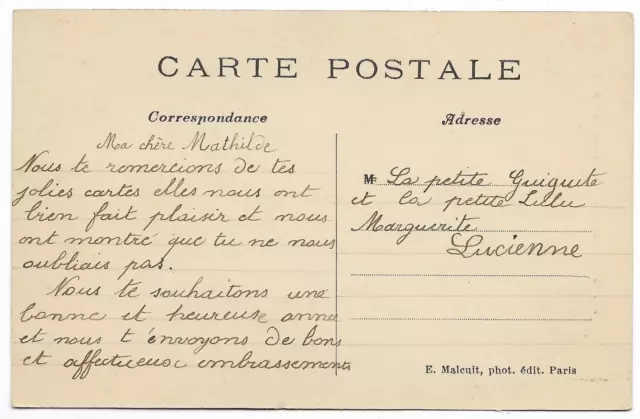 CARTE POSTALE
Correspondance
Ma chère Mathilde
Nous te remercions de tes
jolies cartes elles nous ont
bien fait plaisir et nous
ont montré que tu ne nous
oubliais pas.
Nous te souhaitons une
bonne et heureuse année
et nous t'envoyons de bons
et affectueux embrassements
Adresse
M La petite Guiguite
et la petite Lulu
Marguerite
Lucienne
E. Malcuit, phot. édit. Paris